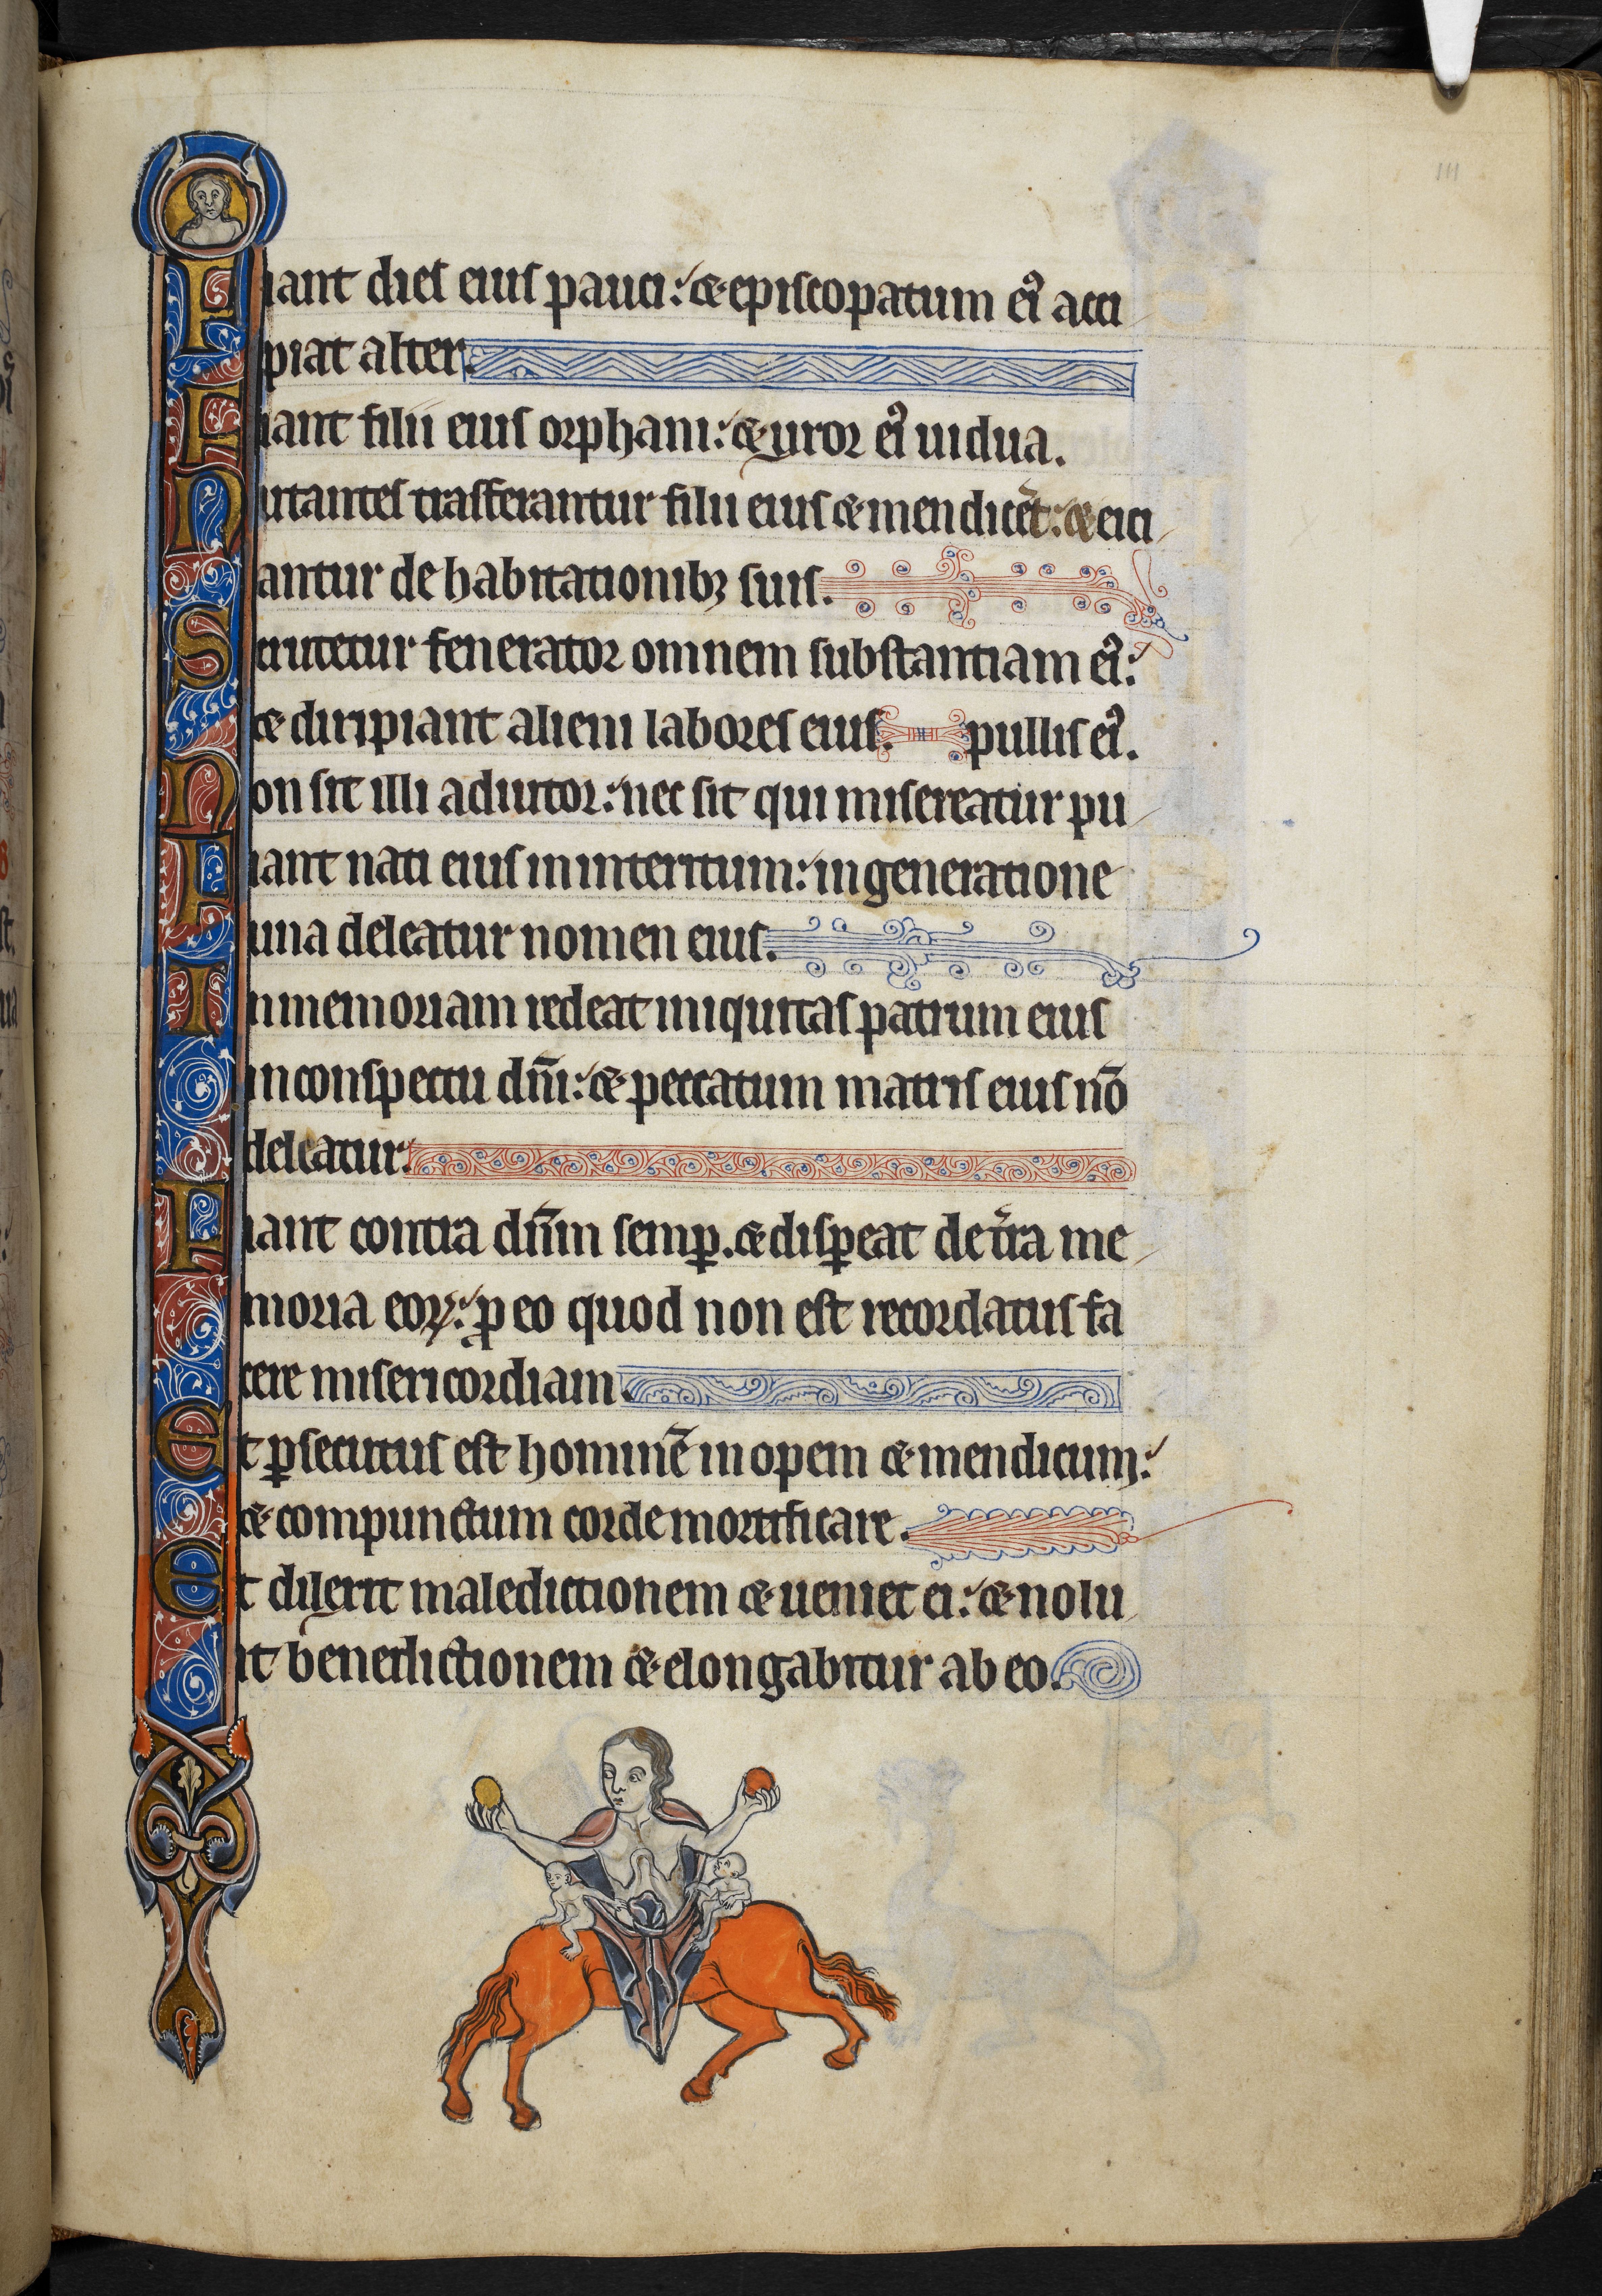 111
Fiant dies eius pauci: & episcopatum ei᾽ acci
piat alter.
Fiant filii eius orphani: & uxor ei᾽ uidua.
Nutantes trasferantur filii eius & mendicēt: & eici
antur de habitationibꝫ suis.
Scrutetur fenerator omnem substantiam ei᾽:
& diripiant alieni labores eius. pullis ei᾽.
Non sit illi adiutor: nec sit qui misereatur pu
Fiant nati eius in interitum: in generatione
una deleatur nomen eius.
In memoriam redeat iniquitas patrum eius
in conspectu dñi: & peccatum matris eius nō
deleatur.
Fiant contra dñm semꝑ. & disꝑeat de t̾ra me
moria eoꝝ: ꝓ eo quod non est recordatus fa
cere misericordiam.
Et ꝑsecutus est hominē inopem & mendicum:
& compunctum corde mortificare.
Et dilexit maledictionem & ueniet ei: & nolu
it benedictionem & elongabitur ab eo.